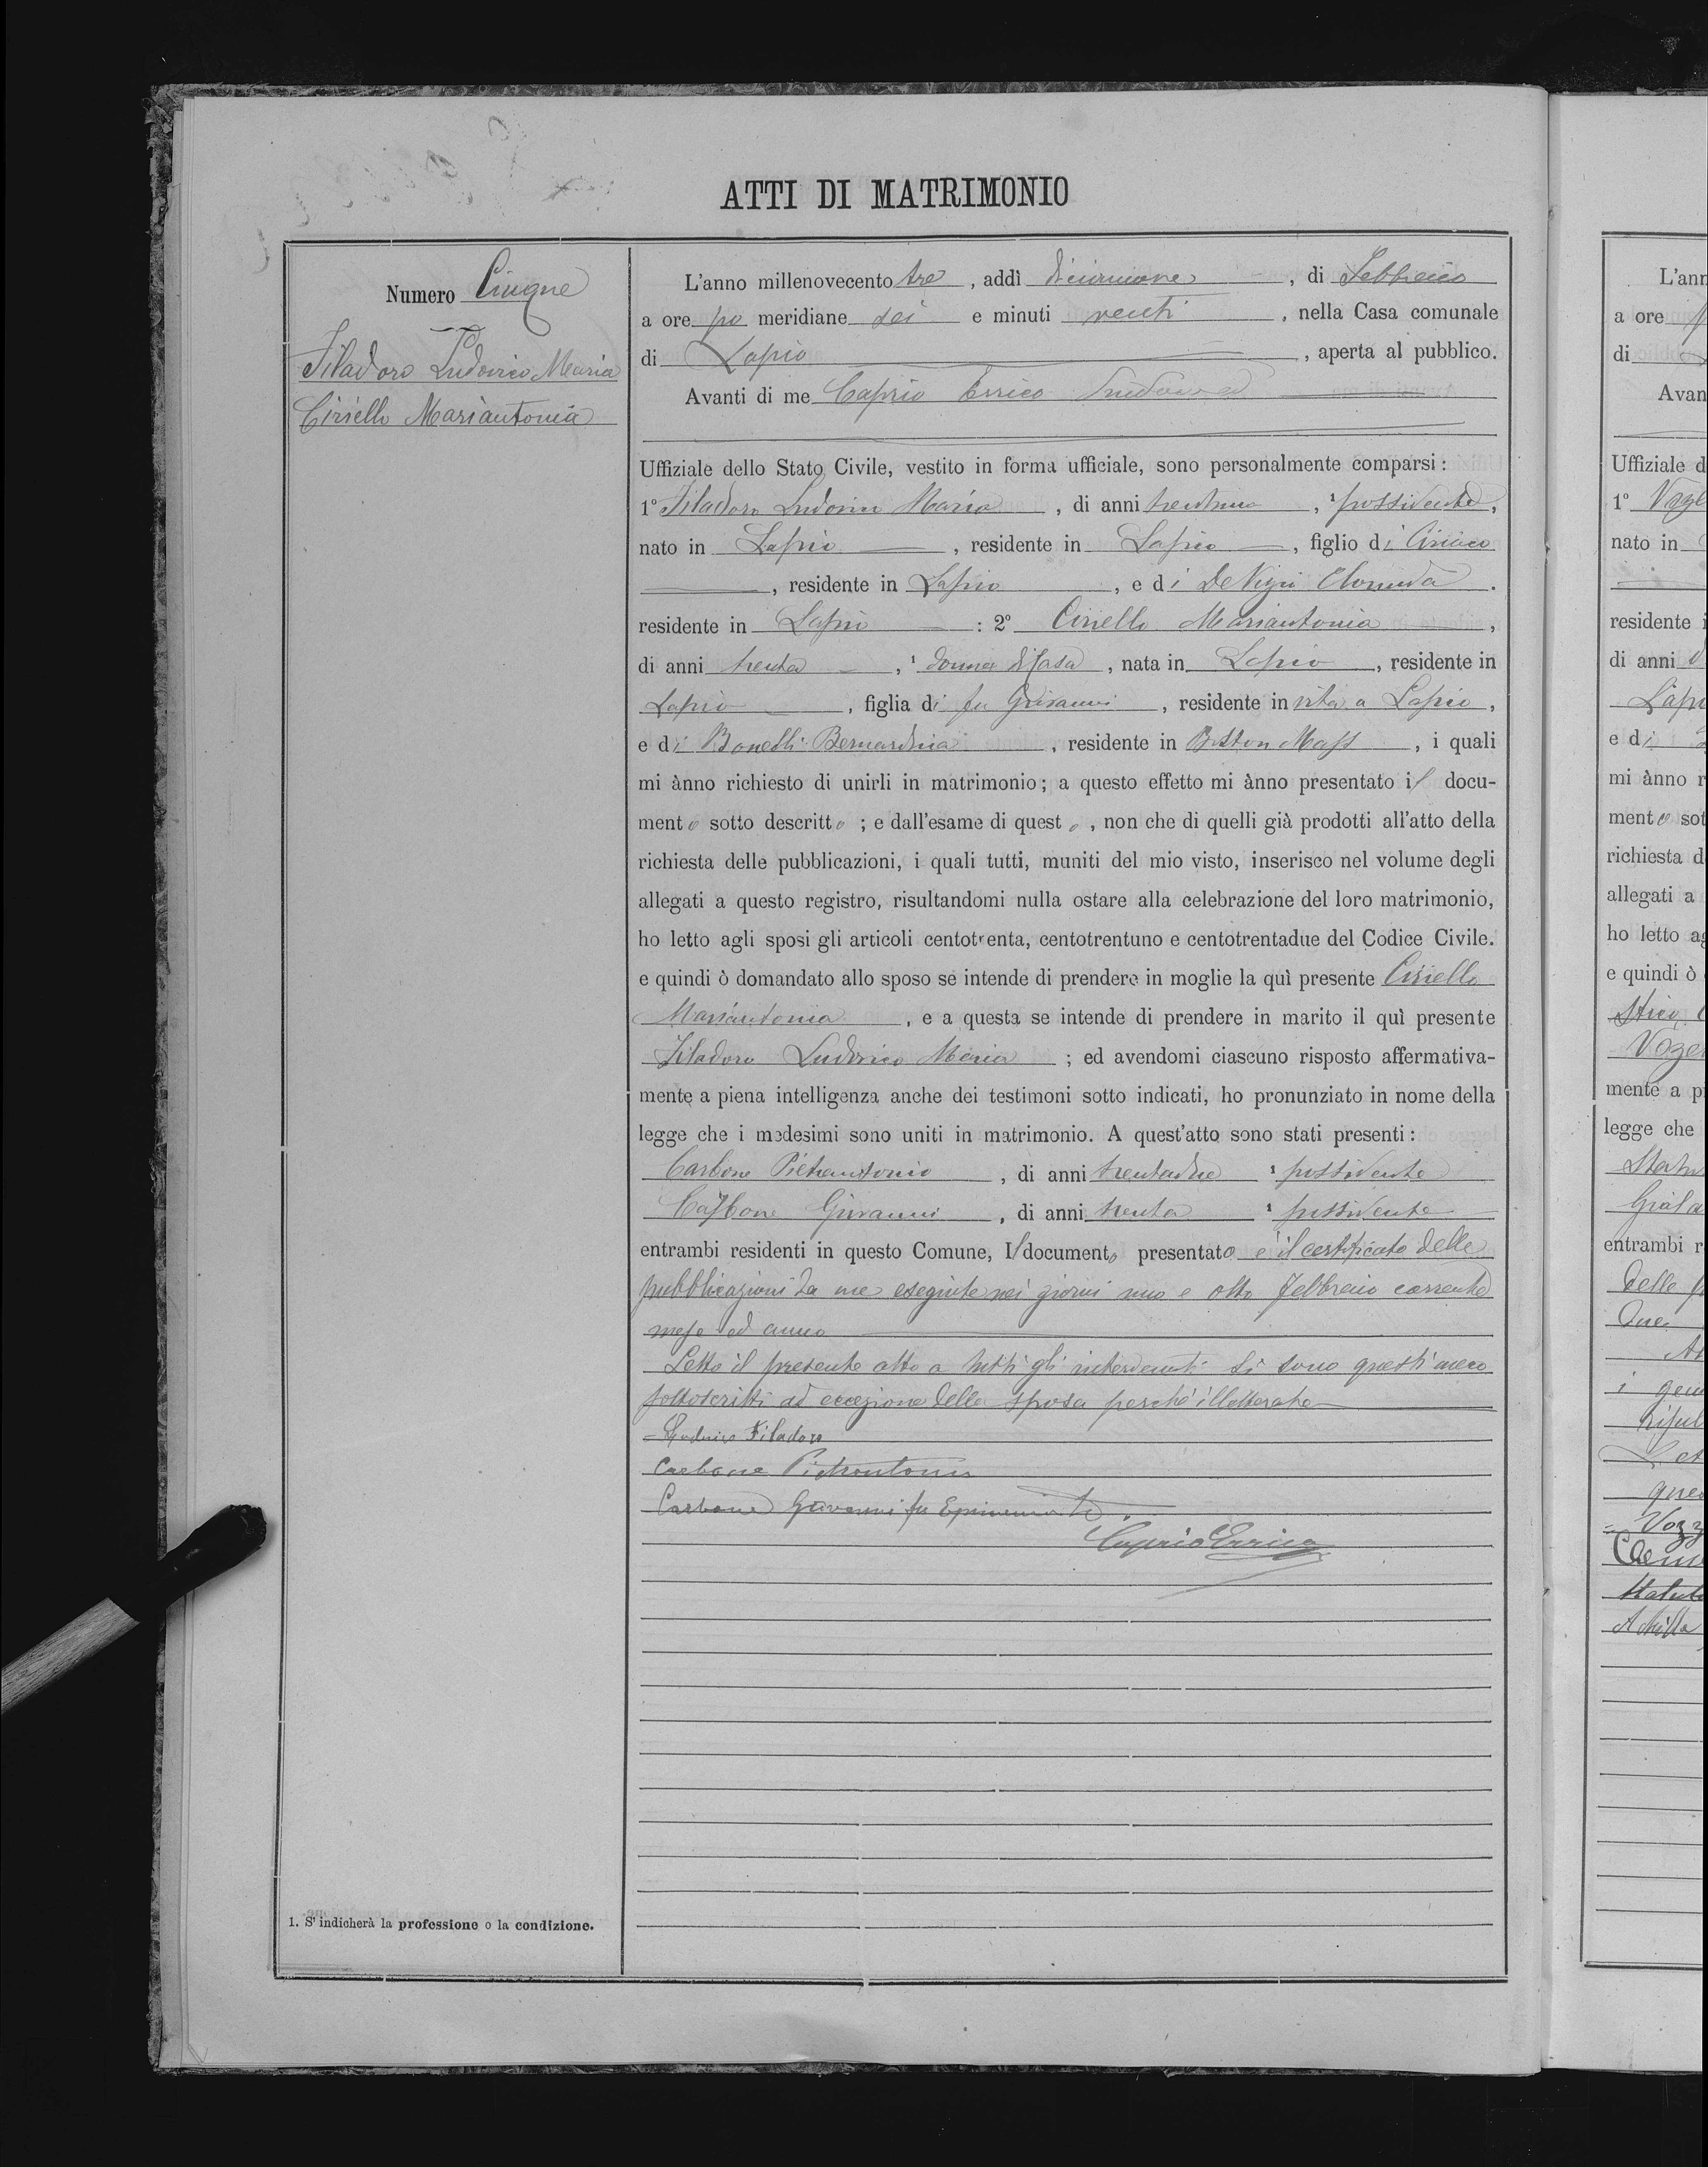 ATTI DI MATRIMONIO
Numero Cinque
Filadoro Ludovico Maria
Ciriello Mariantonia
1. S'indicherà la professione o la condizione.
L'anno millenovecento tre, addì diciannove, di Febbraio
a ore po meridiane sei e minuti venti, nella Casa comunale
di Lapio, aperta al pubblico.
Avanti di me Caprio Errico Sindaco
Uffiziale dello Stato Civile, vestito in forma ufficiale, sono personalmente comparsi:
1º Filadoro Ludovico Maria, di anni trentuno, ¹ possidente,
nato in Lapio, residente in Lapio, figlio di Ciriaco
, residente in Lapio, e di
residente in Lapio : 2º Ciriello Mariantonia,
di anni trenta, ¹ donna di Casa, nata in Lapio, residente in
Lapio, figlia di fu Giovanni, residente in vita a Lapio,
e di Bonelli Bernardina, residente in Boston Mass, i quali
mi ànno richiesto di unirli in matrimonio; a questo effetto mi ànno presentato il docu-
mento sotto descritto; e dall'esame di questo, non che di quelli già prodotti all'atto della
richiesta delle pubblicazioni, i quali tutti, muniti del mio visto, inserisco nel volume degli
allegati a questo registro, risultandomi nulla ostare alla celebrazione del loro matrimonio,
ho letto agli sposi gli articoli centotrenta, centotrentuno e centotrentadue del Codice Civile.
e quindi ò domandato allo sposo se intende di prendere in moglie la quì presente Ciriello
Mariantonia, e a questa se intende di prendere in marito il quì presente
Filadoro Ludovico Maria; ed avendomi ciascuno risposto affermativa-
mente a piena intelligenza anche dei testimoni sotto indicati, ho pronunziato in nome della
legge che i medesimi sono uniti in matrimonio. A quest'atto sono stati presenti:
Carbone Pietrantonio, di anni trentadue ¹ possidente
Carbone Giovanni, di anni trenta ¹ possidente
entrambi residenti in questo Comune, Il documento presentato è il certificato delle
pubblicazioni da me eseguite nei giorni uno e otto febbraio corrente
mese ed anno
Letto il presente atto a tutti gli intervenuti si sono questi meco
sottoscritti ad eccezione della sposa perchè illetterata
Ludovico Filadoro
Carbone Pietrantonio
Carbone Giovanni fu
Caprio Errico
L'ann
a ore
di
Avan
Uffiziale d
1º
nato in
residente i
di anni
Lapi
e di
mi ànno r
mento sot
richiesta d
allegati a
ho letto ag
e quindi ò
mente a p
legge che
entrambi r